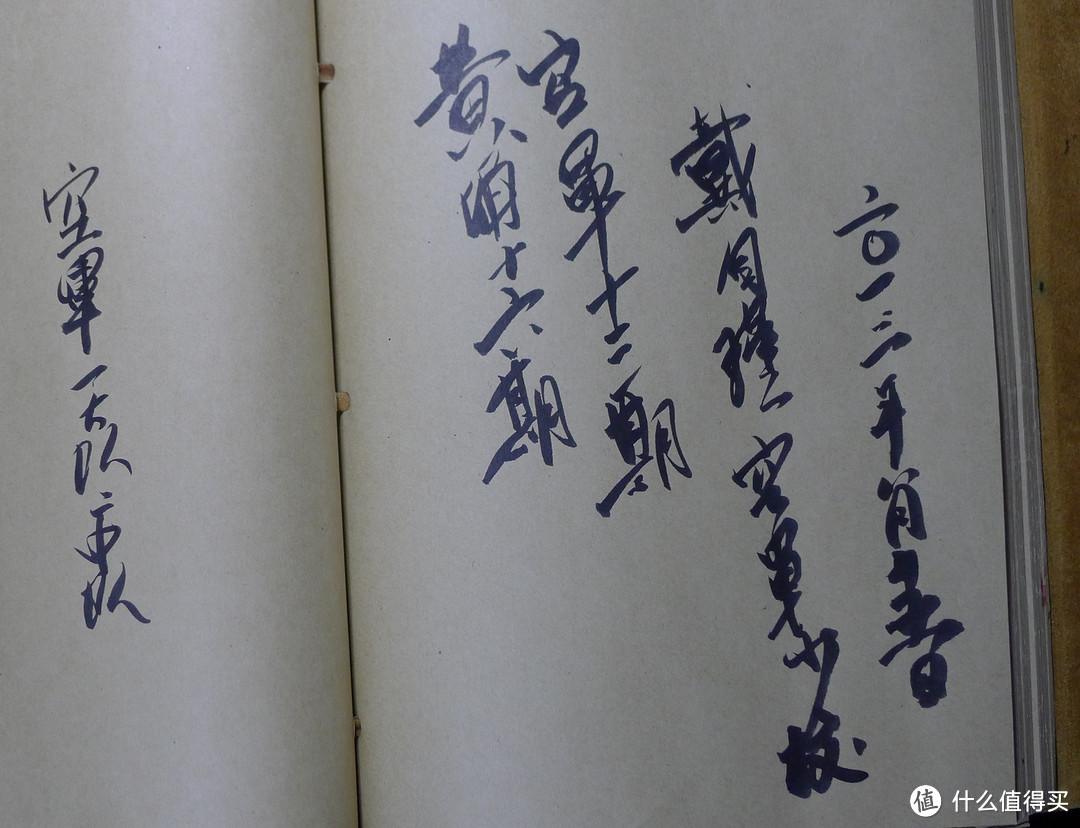 二〇一三年
戴 空軍少校
空軍十二期
黄埔十六期
空軍一大队二中队
值 什么值得买